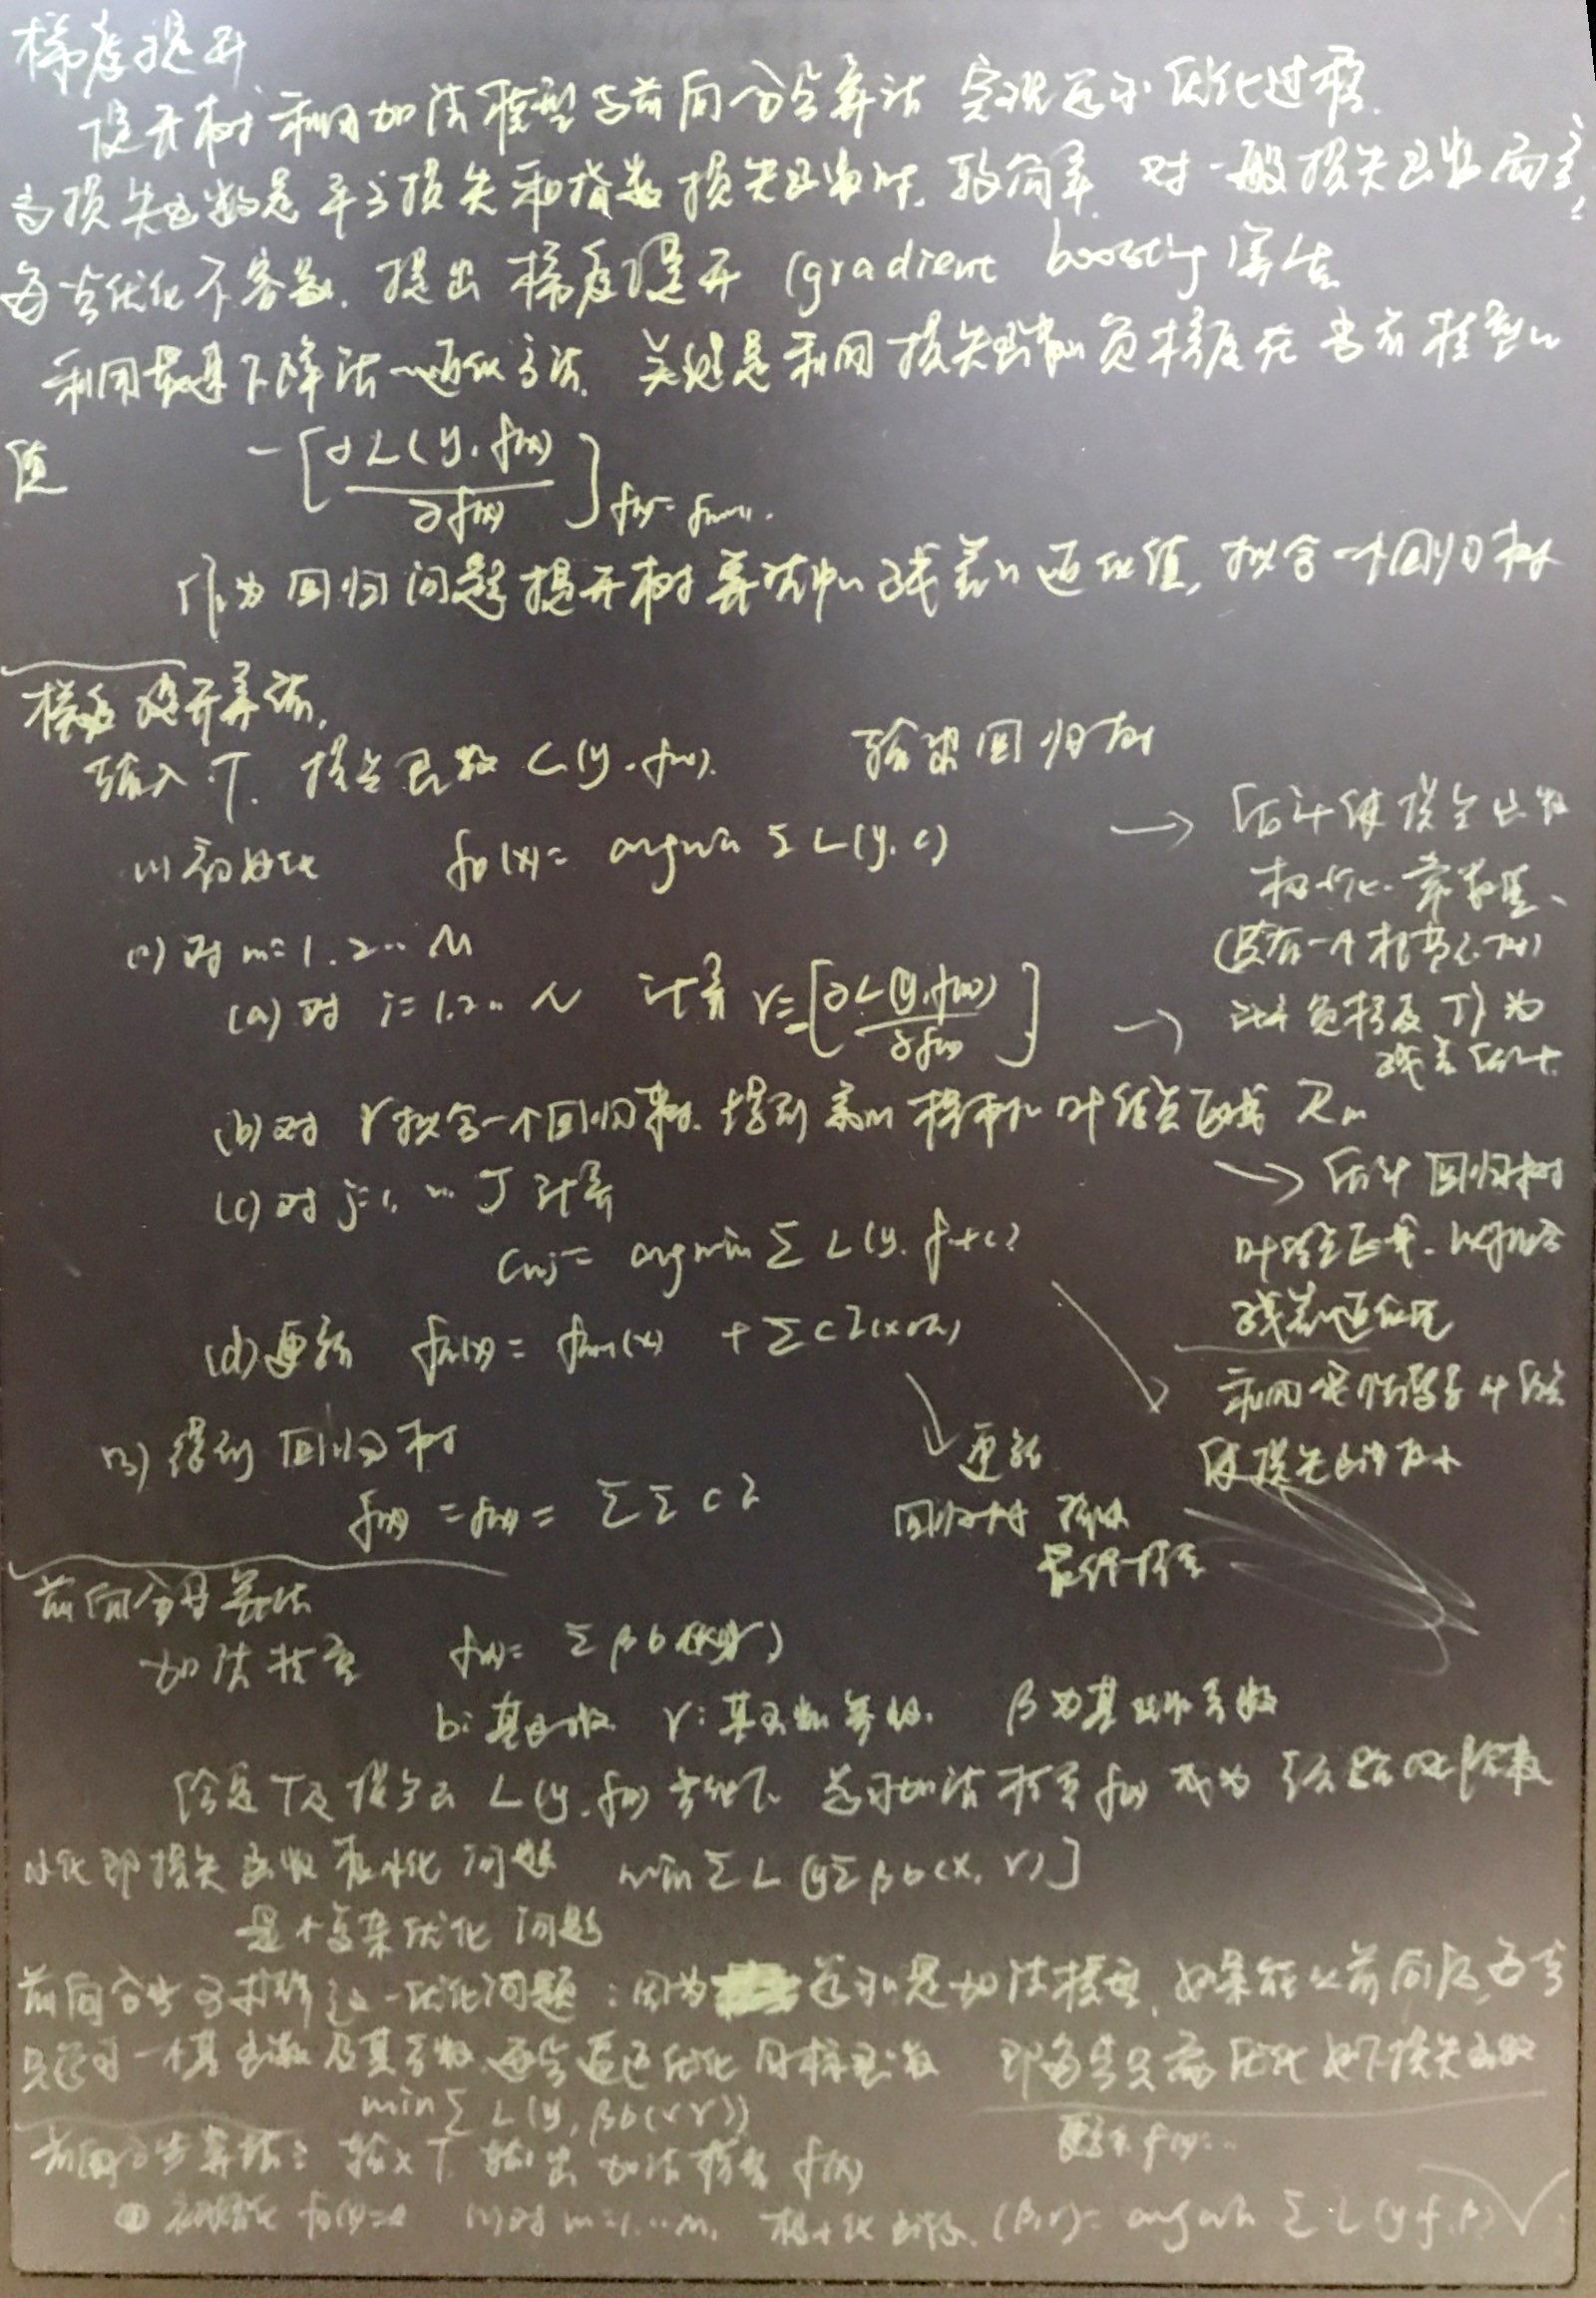 梯度提升
提升树利用加法模型与前向分步算法实现学习优化过程.
当损失函数是平方损失和指数损失函数时,较简单.对一般损失函数而言,
每步优化不容易.提出梯度提升(gradient boosting)算法
利用最速下降法的近似方法.关键是利用损失函数的负梯度在当前模型的
值 -[∂L(y,f(x))/∂f(x)] f(x)=fm-1
作为回归问题提升树算法中的残差的近似值,拟合一个回归树
梯度提升算法,
输入T.损失函数L(y,f(x)). 输出回归树
(1)初始化 f0(x)= argmin Σ L(y,c)
→ 估计使损失函数
极小化的常数值、
(只有一个根节点的树)
(2)对m=1.2…M
(a)对 i=1.2…N 计算 r=-[∂L(y,f(x))/∂f(x)]
→ 计算负梯度 作为
残差估计
(b)对 r拟合一个回归树.得到第m棵树的叶结点区域 Rm
→ 估计回归树
叶结点区域.以拟合
残差近似值
(c)对 j=1,…J 计算
Cmj= argmin Σ L(y,f+c)
利用线性搜索
使损失函数极小
(d)更新 fm(x)= fm-1(x) +Σ c I(x∈R)
更新
回归树
(3)得到回归树
f(x) =fM(x)= Σ Σ c I
前向分步算法
加法模型 f(x)= Σ β b(x,γ)
b:基函数 γ:基函数参数. β为基函数系数
给定T及损失函 L(y,f(x))条件下 学习加法模型f(x)成为经验风险极
小化即损失函数极小化问题 min Σ L[yΣβb(x,γ)]
是个复杂优化问题
前向分步 求解这一优化问题:因为 学习是加法模型,如果能从前向后,每步
只学习一个基函数及其系数,逐步逼近优化目标函数 即每步只需优化如下损失函数
min Σ L(y,βb(x,γ))
前向分步算法:输入T 输出加法模型 f(x)
初始化 f0(x)=0 (2)对m=1,…M, 极小化 (β,γ)= argmin Σ L(y,f,β)